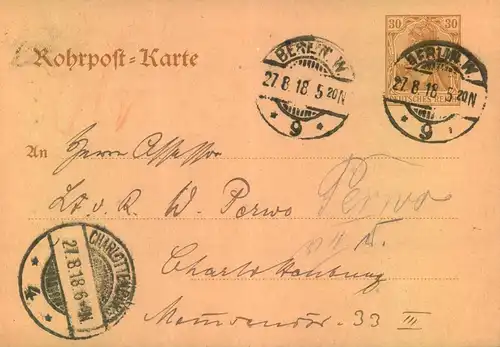 30 30
DEUTSCHES REICH
Rohrpost=Karte
BERLIN. W.
27.8.18.5-20N
* 9 *
BERLIN. W.
27.8.18.5-20N
* 9 *
An Herrn Assessor
Lt. d. R. W. Perwo
Perwo
Charlottenburg
33 III
CHARLOTTENBURG
27.8.18.6-N.
* 4 *